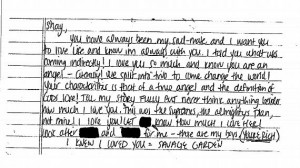 Shay,
You have always been my soul-mate and I want you
to live life and know I'm always with you. I told you what was
coming indirectly! I love you so much and know you are an
angel - literally! We split into two to come change the world!
Your characteristics is that of a true angel and the definition of
God's love! Tell my story fully but never think anything besides
how much I love you. This was the supremes, the almightys plan,
not mine! I love you! Let know how much I love them!
Look after and for me - those are my boys (You're Rich)
I KNEW I LOVED YOU = SAVAGE GARDEN